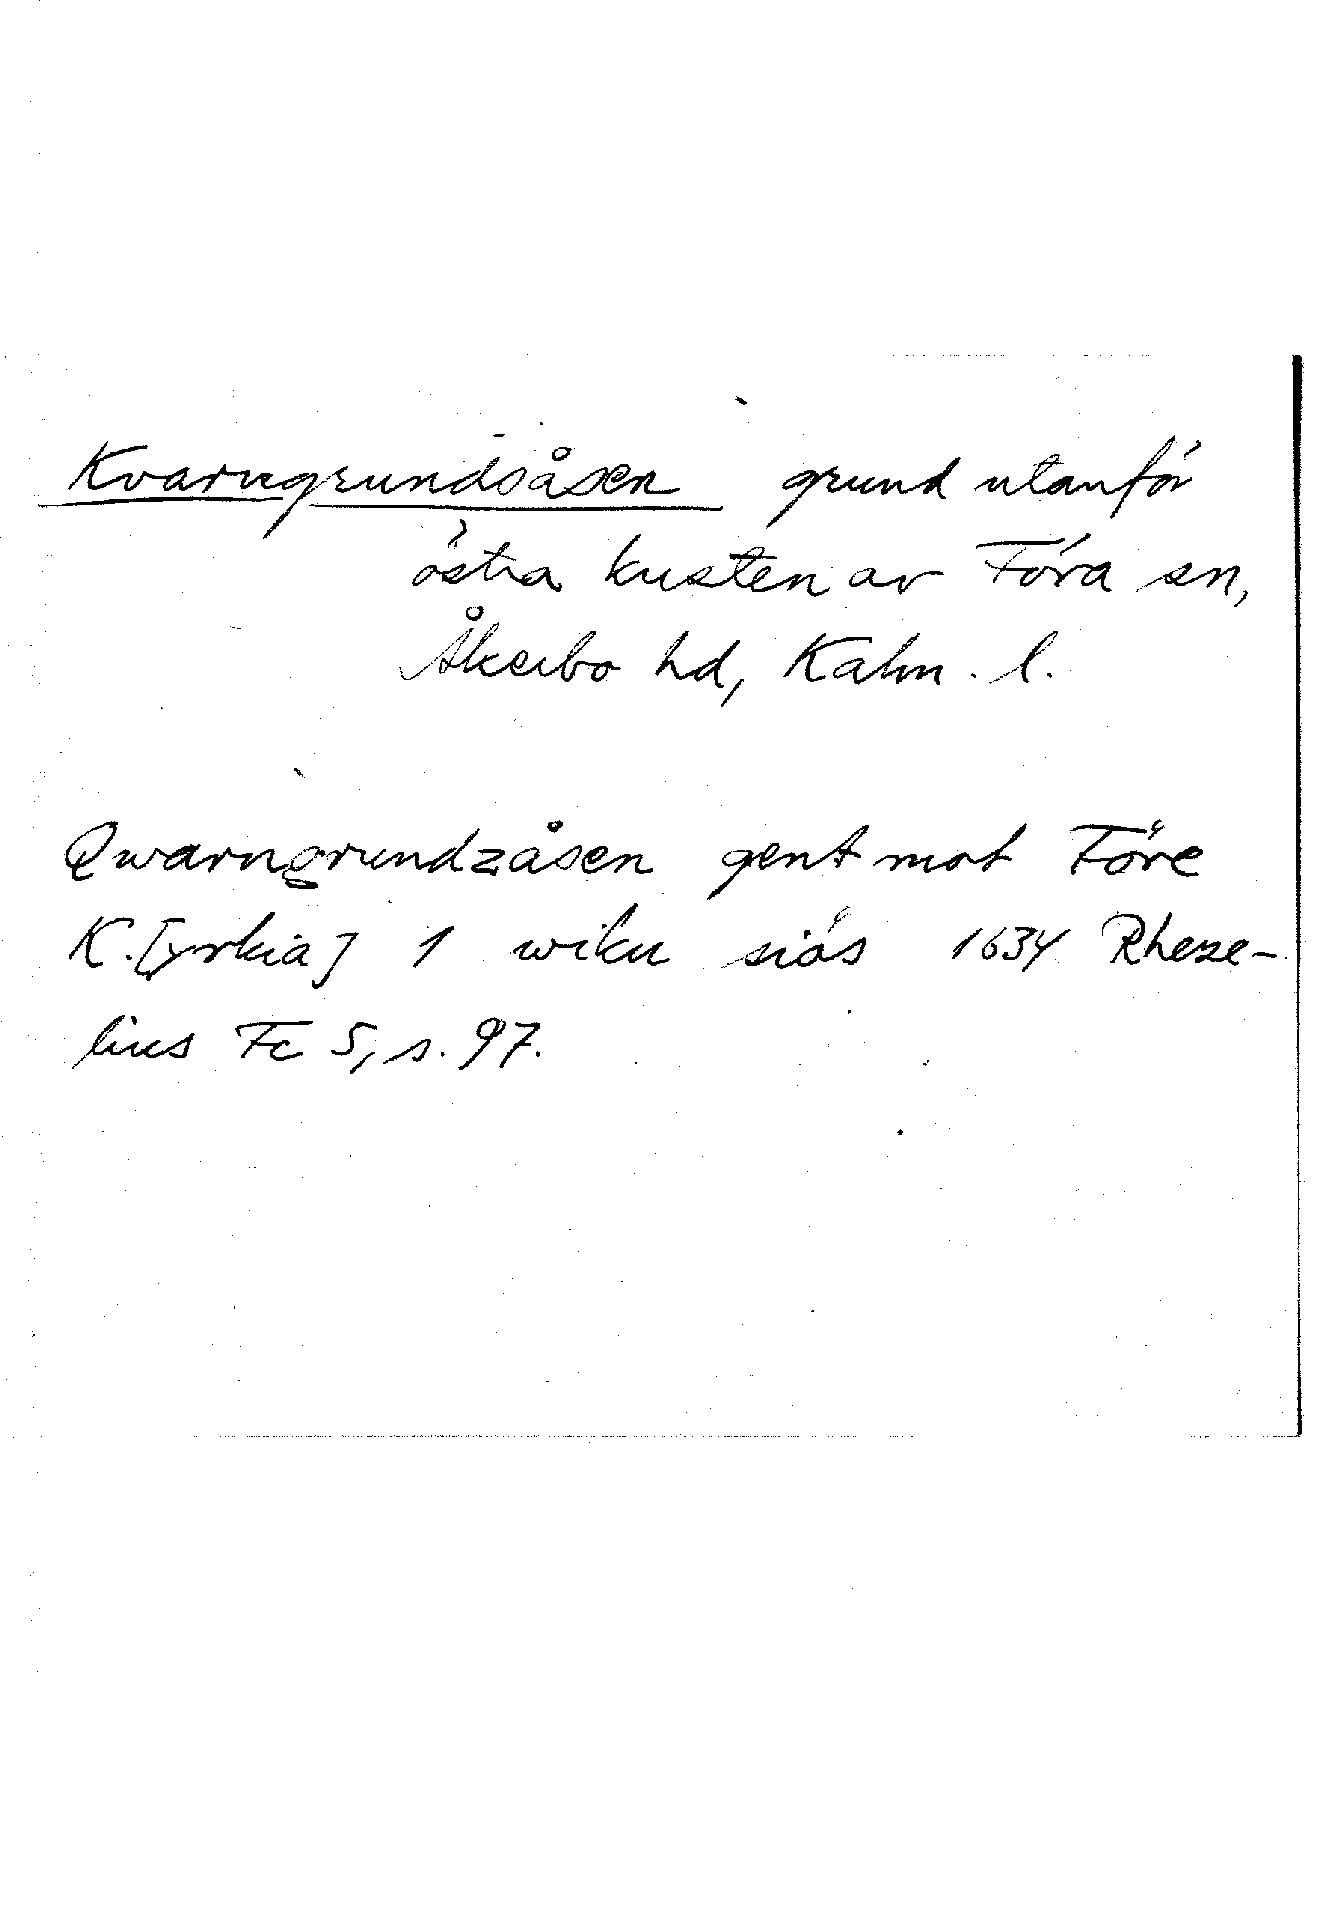 Kvarngrundsåsen grund utanför
östra kusten av Föra sn,
Åkerbo hd, Kalm. l.
Qwarngrundzåsen gent mot Före
K.[yrkia] 1 wiku siös 1634 Rheze-
lius Fc 5, s. 97.